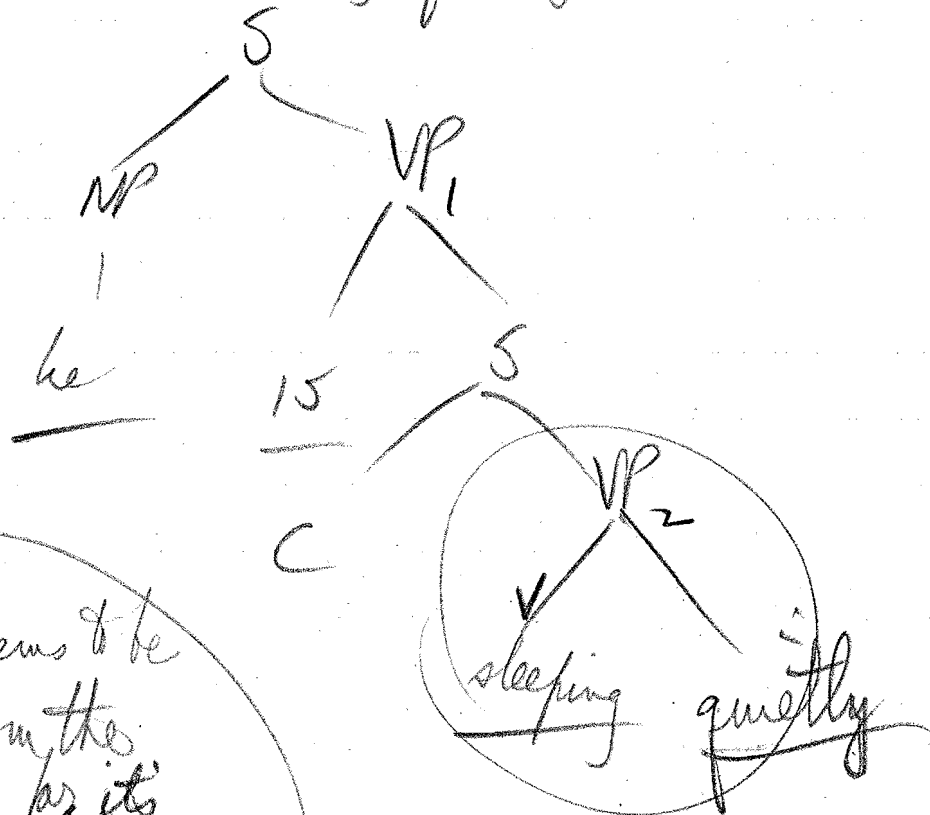 S
NP VP1
he is S
C VP2
V
sleeping quietly
to be
as it's